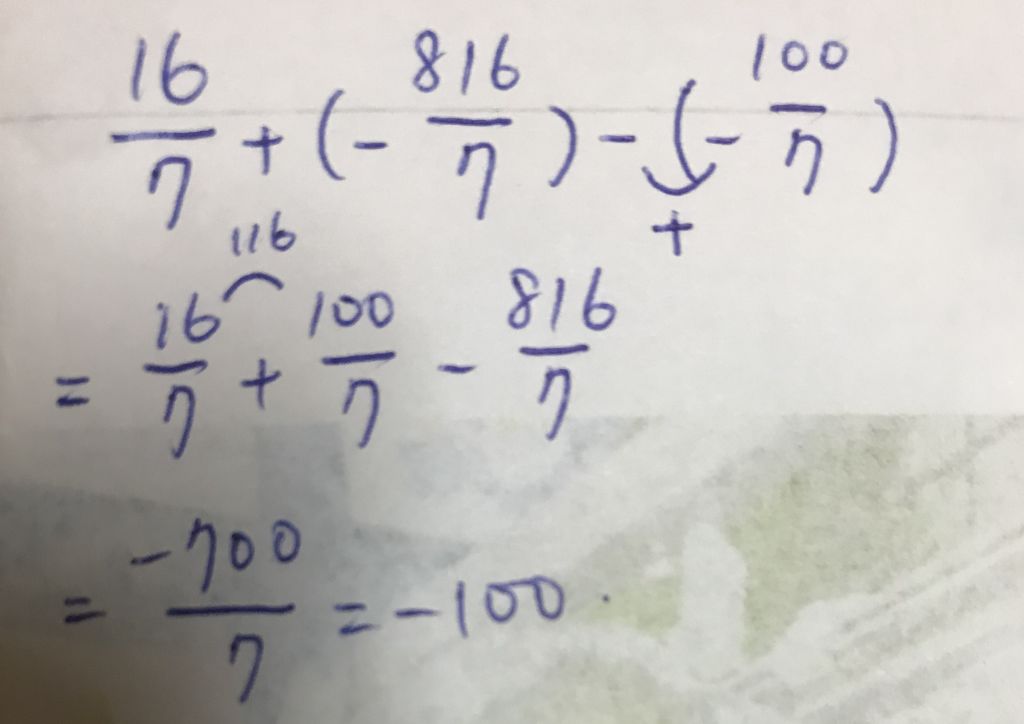 16/7 + (- 816/7) - (- 100/7)
+
116
= 16/7 + 100/7 - 816/7
= -700/7 = -100.